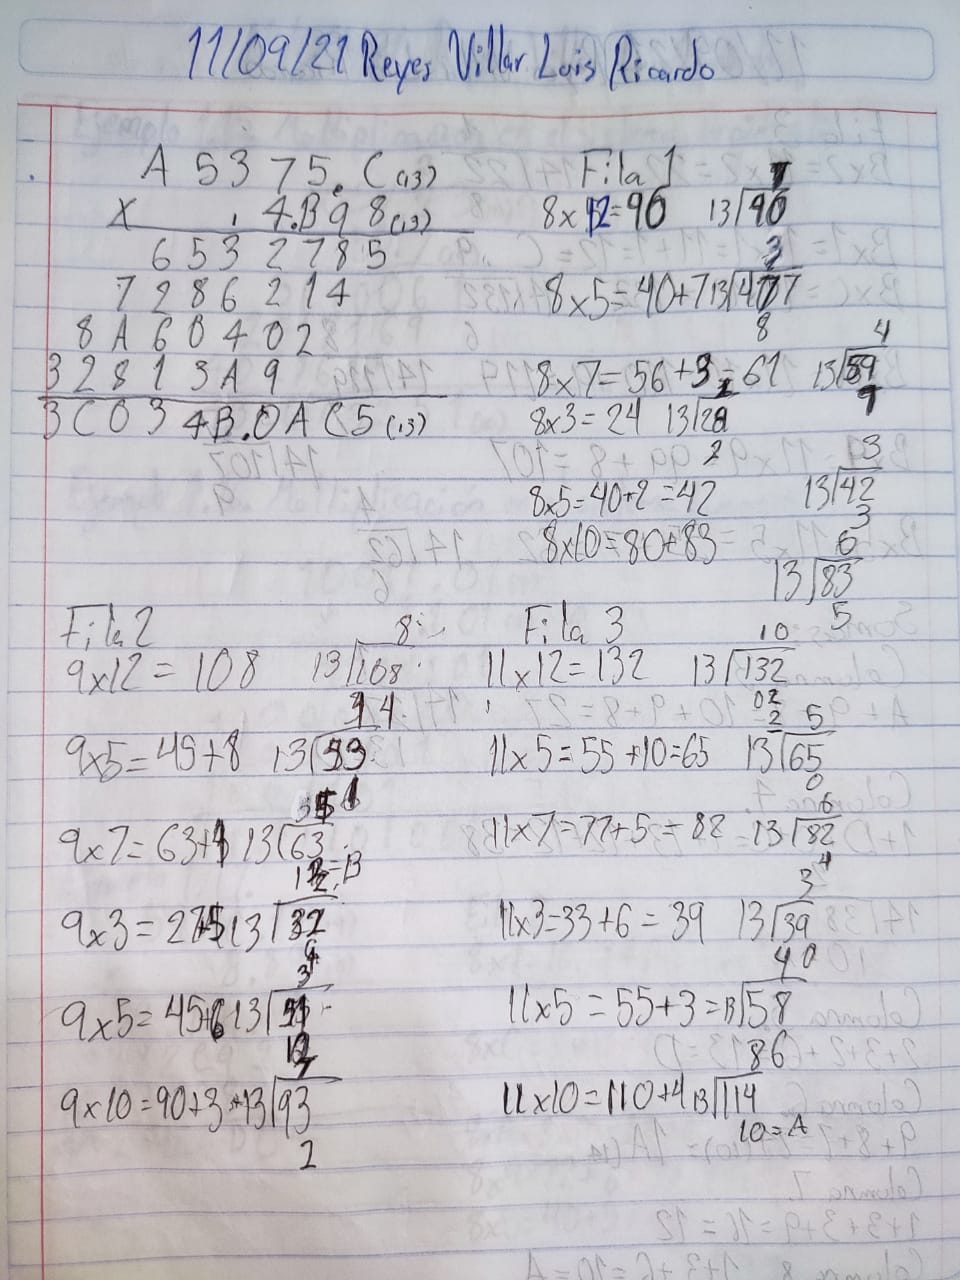 11/09/21 Reyes Villar Luis Ricardo
A 5 3 7 5 . C (13)
x 4.B 9 8 (13)
6 5 3 2 7 8 5
7 2 8 6 2 1 4
8 A 6 0 4 0 2
3 2 8 1 3 A 9
3 C 0 3 4 B . 0 A C 5 (13)
Fila 1
8 x 12 = 96 13/96
8 x 5 = 40 + 7 13/47
8
8 x 7 = 56 + 3 = 61 13/59
8 x 3 = 24 13/28
2
3
8 x 5 = 40 + 2 = 42 13/42
3
8 x 10 = 80 + 83
6
13/83
5
Fila 2
8
9 x 12 = 108 13/108
4
9 x 5 = 45 + 8 13/53
9 x 7 = 63 + 13/63
= B
9 x 3 = 27 + 5 13/32
3
9 x 5 = 45 + 6 13/51
9 x 10 = 90 + 3 13/93
2
Fila 3
10
11 x 12 = 132 13/132
02
2 5
11 x 5 = 55 + 10 = 65 13/65
0
6
11 x 7 = 77 + 5 = 82 13/82
4
3
11 x 3 = 33 + 6 = 39 13/39
4 0
11 x 5 = 55 + 3 = 13/58
8 6
11 x 10 = 110 + 4 13/114
10 = A